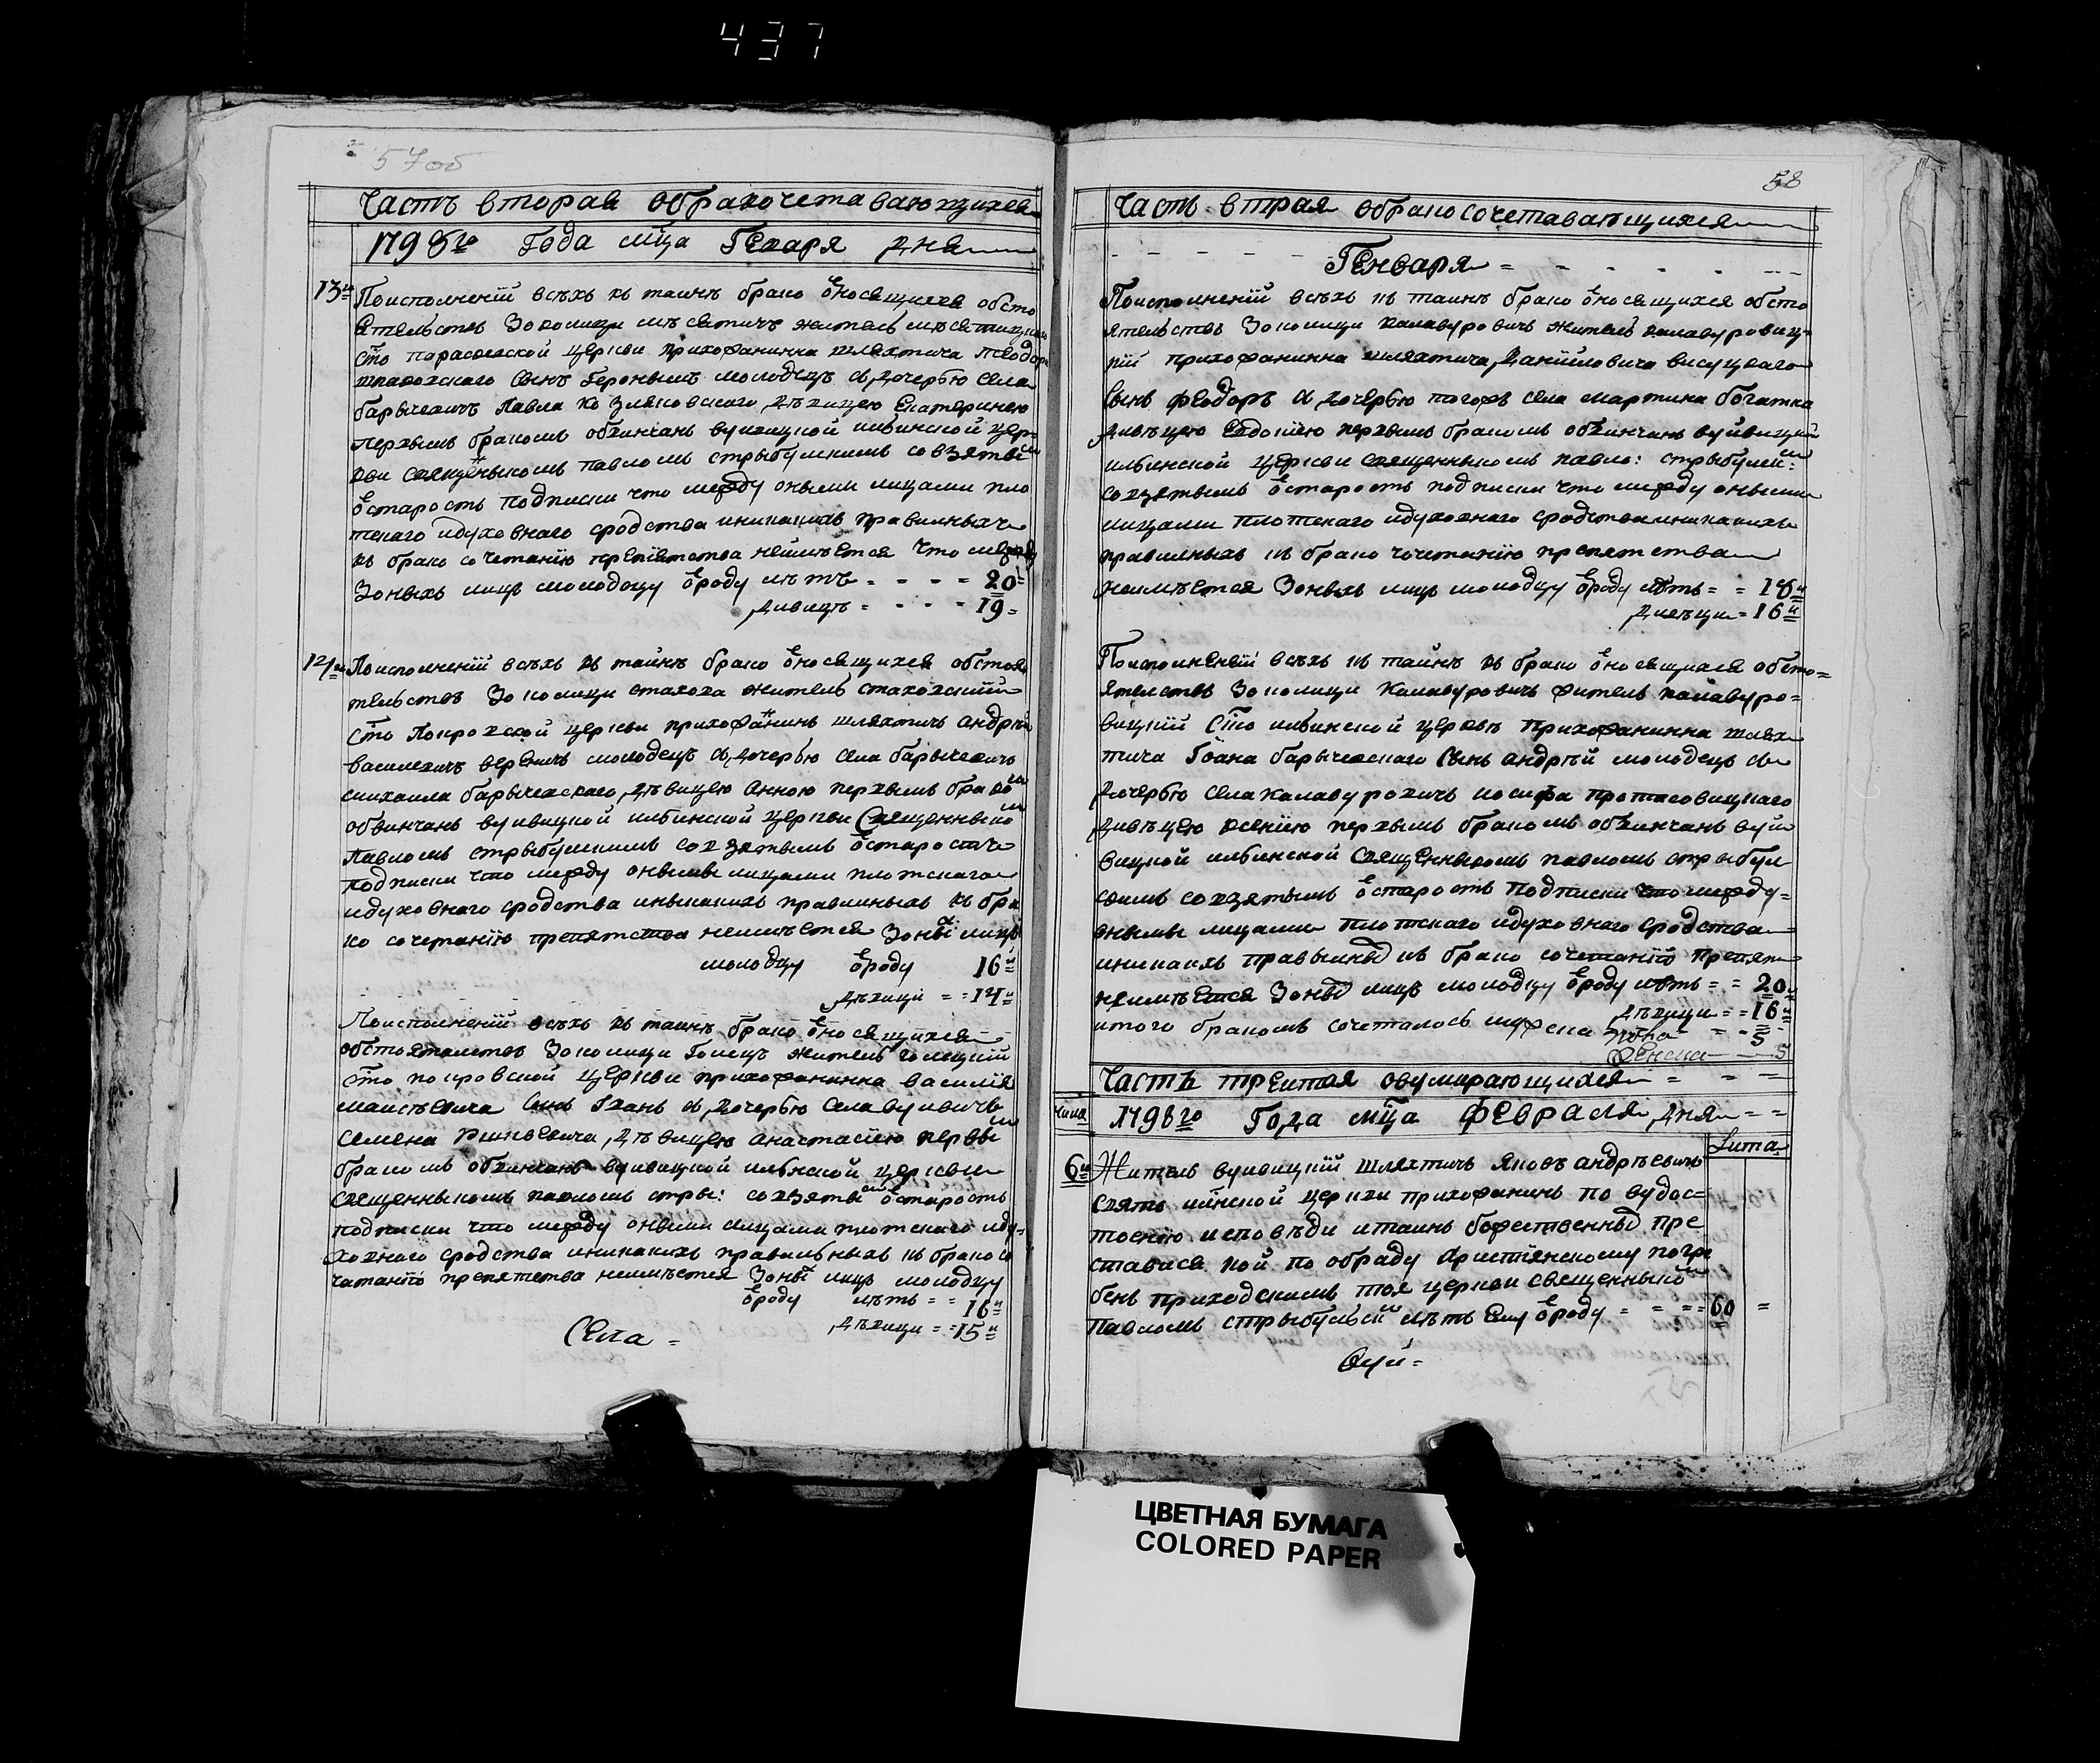 437
57об
Часть вторая обракочетаваюхщихся
1798го Года мца Генаря дня
13го Поисполненій всѣхъ къ таинѣ брако относящихся обсто
ятельствъ Зоколици мѣсятичъ житель мѣсятицкій
сто параскевской церкви прихожанинна шляхтича Ѳеодора
Сынъ Геронымъ молодецъ съ дочерью села
барычевичъ Павла Козляковскаго дѣвицею Екатериною
первымъ бракомъ обвинчанъ вуивицкой илинской цер
кви священыкомъ павломъ стрыбулскимъ совзятиі
остарость подписки что между оными лицами пло
тскаго идуховнаго сродства иникакихъ правилныхъ
къ брако сочетанію препятства неимѣется что между
Зоныхъ лицъ молодцу ѿроду лѣтъ = - - = 20
дивицѣ = - - = 19 =
Поисполненій всѣхъ къ таинѣ брако относящихся обстоя
тельствъ Зоколици стахова житель стаховскій
сто Покровской церкви прихожанинъ шляхтичъ андрѣй
василевичъ вереничъ молодецъ съ дочерью села барычевичъ
михаила барычевскаго дѣвицею Анною первымъ бракомъ
обвинчанъ вуивицкой илинской церкви Священныком
Павломъ стрыбулскимъ совзятымъ остарость
подписки что между онымы лицами плотскаго
идуховнаго сродства иныкакихъ правилныхъ къ бра
ко сочетанію препятства неимѣется Зоных лицъ
молодцу ѿроду 16
дѣвици = = 14
Поисполненій всѣхъ къ таинѣ брако относящихся
обстоятелствъ ЗоколициГолецъ житель голецкій
сто покровской церкви прихожанинна василія
Сынъ Іванъ съ дочерью Села вуивичъ
семена дѣвицею анастасіею первы
бракомъ обвинчанъ вуивицкой илинской церквы
священныкомъ павломъ стры: совзяты остарость
подписки что между оными лицами плотскаго иду
ховнаго сродства иникакихъ правильныхъ къ бракосо
четанію препятства неимѣется Зоны лицъ молодцу
ѿроду лѣтъ = = 16
дѣвици = = 15
Села =
58
Часть втрая обракосочетавающихся
Генваря =
Поисполненій всѣхъ къ таинѣ брако относящихся обсто
ятельствъ Зоколици калавуровичъ житель калавуровиц
кій прихожанинна шляхтича Даниіловича висуцкаго
Сынъ Феодоръ съ дочерью тогожъ села мартина богатка
дивѣцею Евдокіею первымъ бракомъ обвинчанъ вуйвицкой
илинской церкви священныкомъ павло: стрыбулск:
совзятымъ остарость подписки что между оными
лицами плотскаго идуховнаго сродства иникакихъ
правилныхъ къ брако чочетанію препятства
неимѣется Зоныхъ лицъ молодцу ѿроду лѣтъ = = 18
дивѣци = 16
Поисполненій всѣхъ къ таинѣ къ брако относящихся обсто=
ятелствъ Зоколици Калавуровичъ житель калавуро=
вицкій Сто илинской церквѣ прихожанинна шлях
тича Іоана барычевскаго Сынъ андрѣй молодецъ съ
дочерью села калавуровичъ иосифа протасовицкаго
дивѣцею ксеніею первымъ бракомъ обвинчанъ вуи
вицкой илинской священныкомъ павломъ стрыбул
скимъ совзятымъ остарость подписки что между=
онымы лицами плотскаго идуховнаго сродства
иникакихъ правыных къ брако сочетанію препят
неимѣется Зоных лицъ молодцу ѿроду лѣтъ = = 20
дѣвици = = 16
итого бракомъ сочеталось = = 5
женска 5
Часть третая овумирающихся = - =
числа
1798го Года мца Февраля дня = =
Лита
6 Житель вуивицкій шляхтичъ Яковъ андрѣевичъ
свято илинской церкви прихожанинъ по вудос=
тоенію исповѣди итаинъ божественных пре
ставися кой по обряду христіянскому погре
бенъ приходскимъ тоя церкви священныком
Павломъ стрыбулским лѣтъ Ему ѿроду = = == 60 =
вуи=
ЦВЕТНАЯ БУМАГА
COLORED PAPER